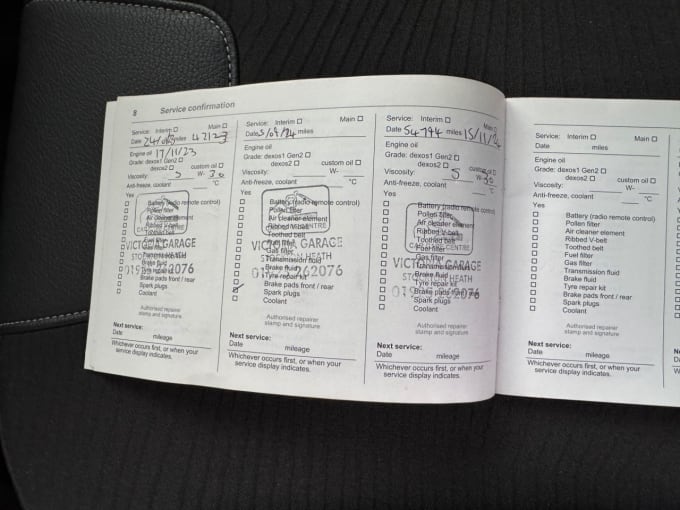 8 Service confirmation
Service: Interim ☐ Main ☐
Date miles 42123
Engine oil 17/11/23
Grade: dexos1 Gen2 ☐ custom oil ☐
dexos2 ☐
Viscosity: 5 W- 30
Anti-freeze, coolant °C
Yes
☐ Battery (radio remote control)
☐ Pollen filter
☐ Air cleaner element
☐ Ribbed V-belt
☐ Toothed belt
☐ Fuel filter
☐ Gas filter
☐ Transmission fluid
☐ Brake fluid
☐ Tyre repair kit
☐ Brake pads front / rear
☐ Spark plugs
☐ Coolant
VICTORIA GARAGE
HEATH
262076
Authorised repairer
stamp and signature
Next service:
Date mileage
Whichever occurs first, or when your
service display indicates.
Service: Interim ☐ Main ☐
Date 5/09/24 miles
Engine oil
Grade: dexos1 Gen2 ☐
dexos2 ☐ custom oil ☐
Viscosity: W-
Anti-freeze, coolant °C
Yes
☐ Battery (radio remote control)
☐ Pollen filter
☐ Air cleaner element
☐ Ribbed V-belt
☐ Toothed belt
☐ Fuel filter
☐ Gas filter
☐ Transmission fluid
☐ Brake fluid
☐ Tyre repair kit
☑ Brake pads front / rear
☐ Spark plugs
☐ Coolant
CENTRE
VICTORIA GARAGE
HEATH
262076
Authorised repairer
stamp and signature
Next service:
Date mileage
Whichever occurs first, or when your
service display indicates.
Service: Interim ☐ Main ☐
Date 54794 miles 15/11/24
Engine oil
Grade: dexos1 Gen2 ☐
dexos2 ☐ custom oil ☐
Viscosity: 5 W- 30
Anti-freeze, coolant °C
Yes
☐ Battery (radio remote control)
☐ Pollen filter
☐ Air cleaner element
☐ Ribbed V-belt
☐ Toothed belt
☐ Fuel filter
☐ Gas filter
☐ Transmission fluid
☐ Brake fluid
☐ Tyre repair kit
☐ Brake pads front / rear
☐ Spark plugs
☐ Coolant
CENTRE
VICTORIA GARAGE
HEATH
262076
Authorised repairer
stamp and signature
Next service:
Date mileage
Whichever occurs first, or when your
service display indicates.
Service: Interim ☐ Main ☐
Date miles
Engine oil
Grade: dexos1 Gen2 ☐
dexos2 ☐ custom oil ☐
Viscosity: W-
Anti-freeze, coolant °C
Yes
☐ Battery (radio remote control)
☐ Pollen filter
☐ Air cleaner element
☐ Ribbed V-belt
☐ Toothed belt
☐ Fuel filter
☐ Gas filter
☐ Transmission fluid
☐ Brake fluid
☐ Tyre repair kit
☐ Brake pads front / rear
☐ Spark plugs
☐ Coolant
Authorised repairer
stamp and signature
Next service:
Date mileage
Whichever occurs first, or when your
service display indicates.